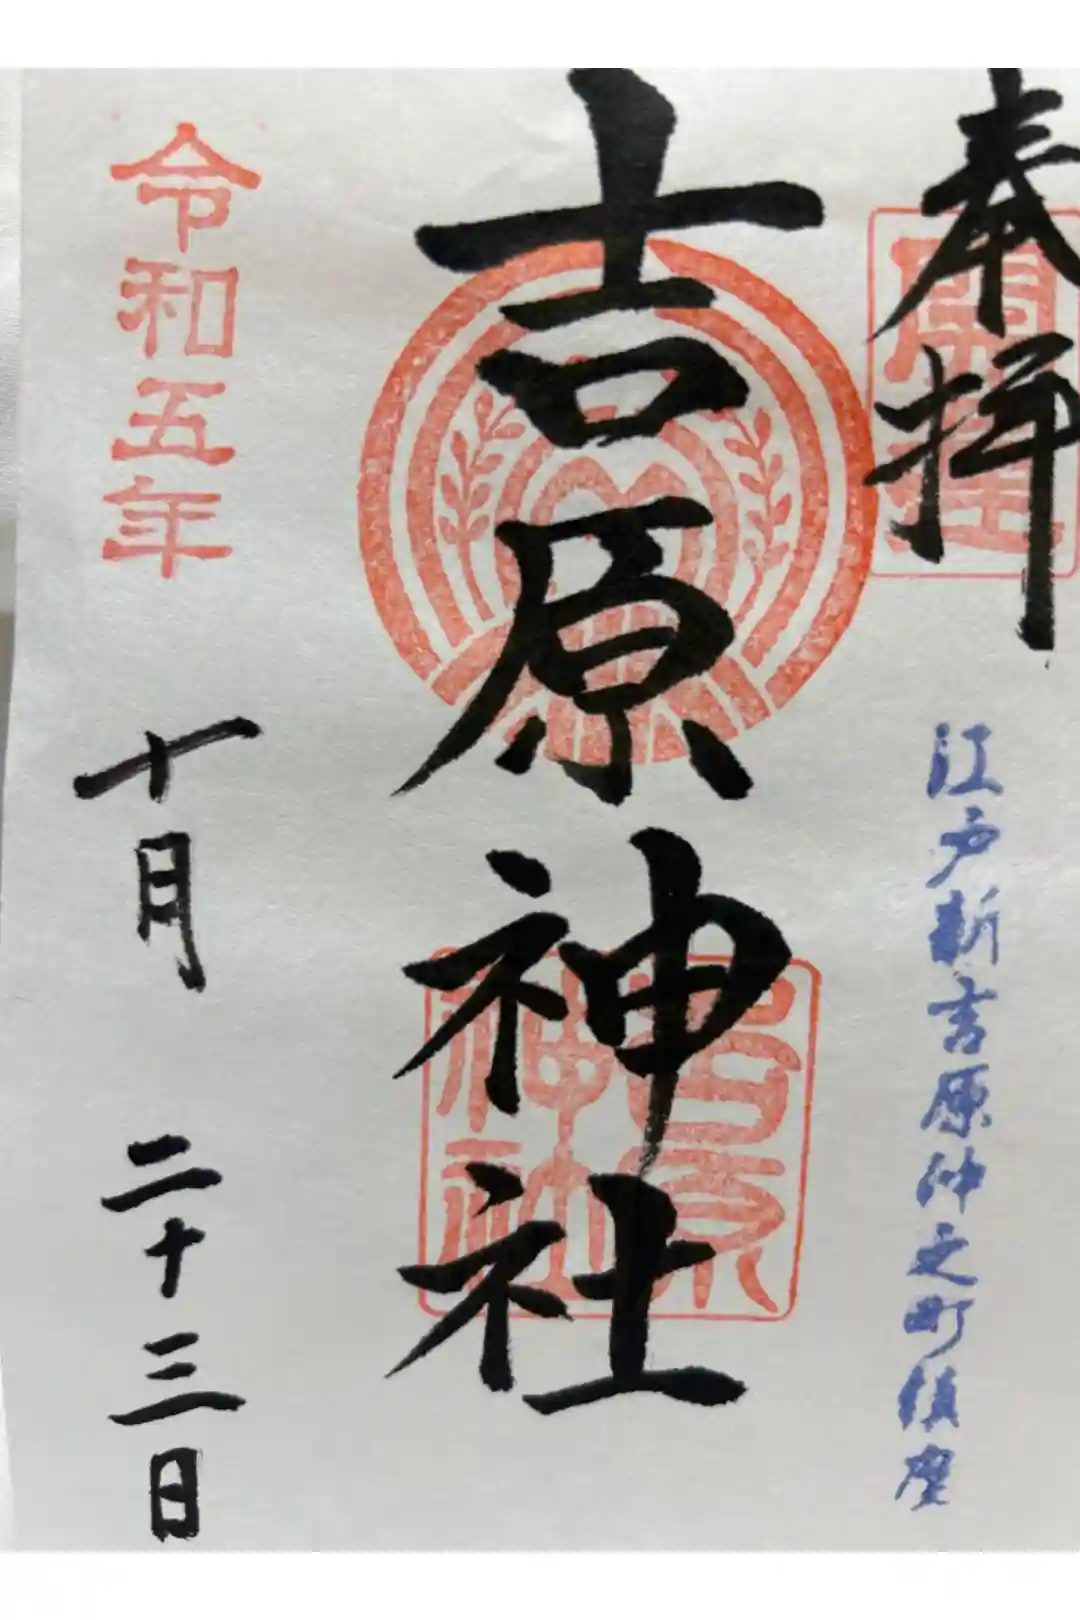 奉拝
江戸新吉原仲之町鎮座
吉原神社
吉原
神社
令和五年
十月
二十三日